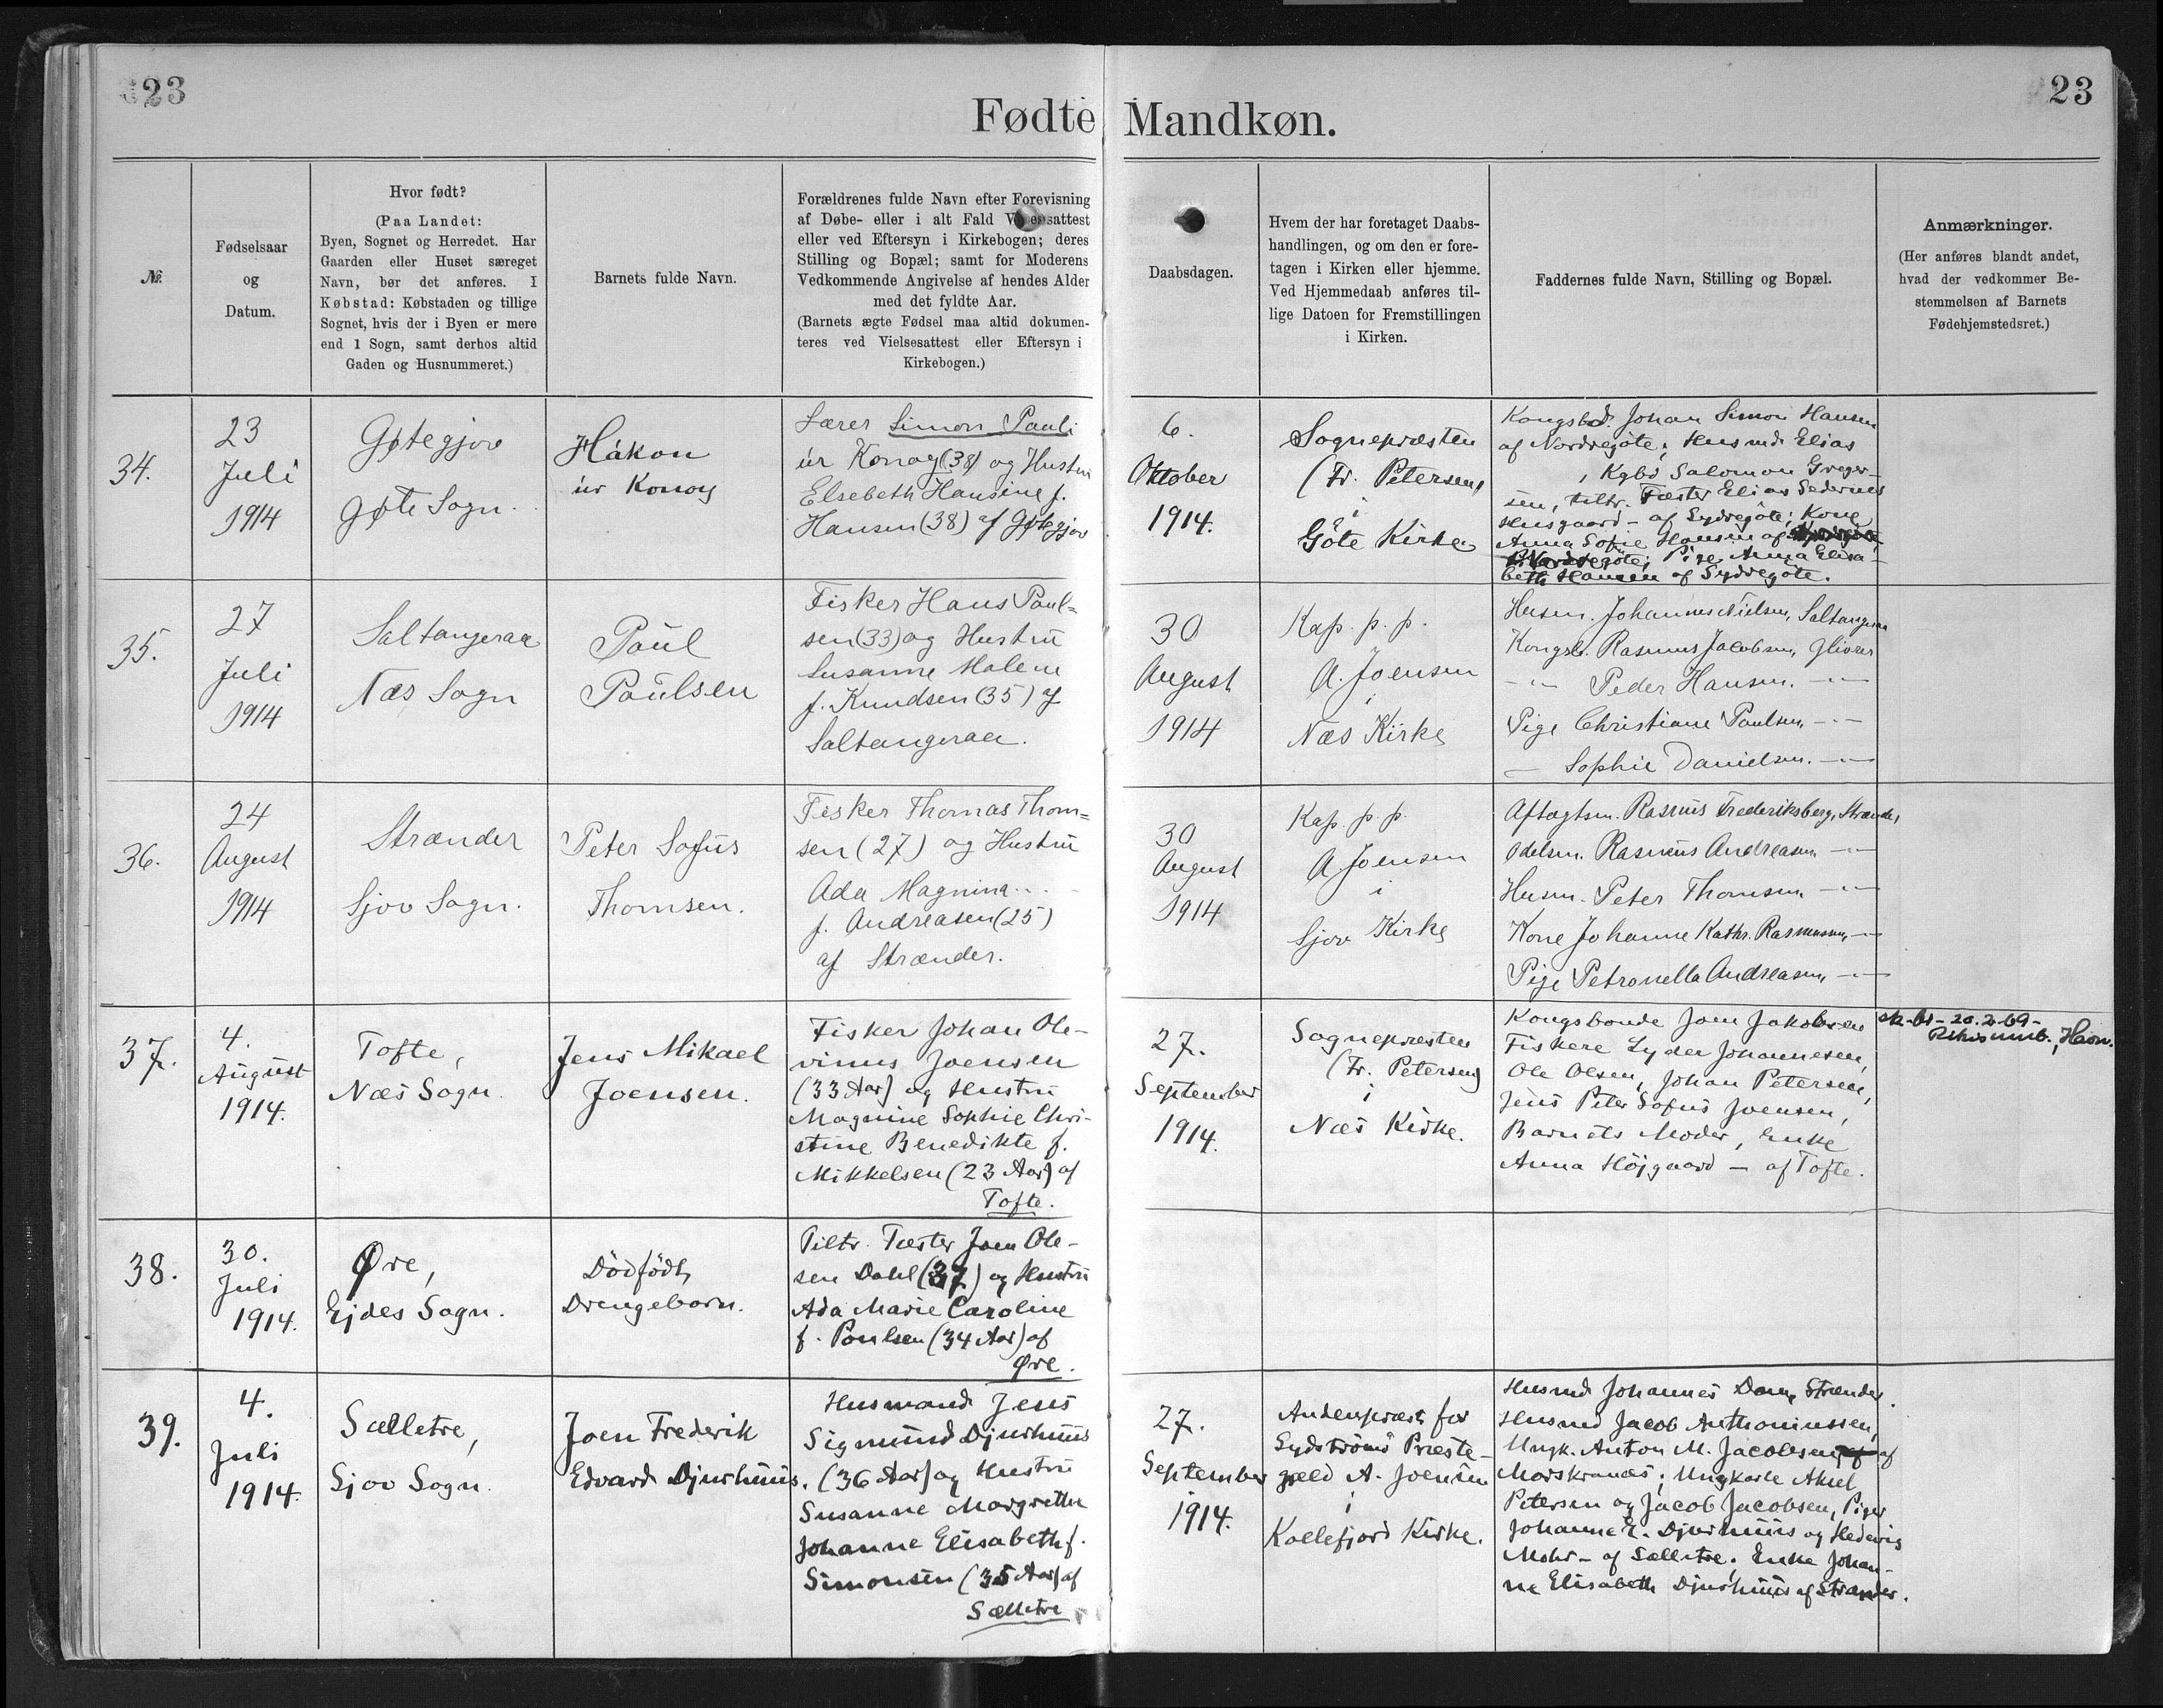 23
23
Fødte Mandkøn.
№
Fødselsaar
og
Datum.
Hvor født?
(Paa Landet:
Byen, Sognet og Herredet. Har
Gaarden eller Huset særeget
Navn, bør det anføres. I
Købstad: Købstaden og tillige
Sognet, hvis der i Byen er mere
end 1 Sogn, samt derhos altid
Gaden og Husnummeret.)
Barnets fulde Navn.
Forældrenes fulde Navn efter Forevisning
af Døbe- eller i alt Fald Vielsesattest
eller ved Eftersyn i Kirkebogen; deres
Stilling og Bopæl; samt for Moderens
Vedkommende Angivelse af hendes Alder
med det fyldte Aar.
(Barnets ægte Fødsel maa altid dokumen-
teres ved Vielsesattest eller Eftersyn i
Kirkebogen.)
Daabsdagen.
Hvem der har foretaget Daabs-
handlingen, og om den er fore-
tagen i Kirken eller hjemme.
Ved Hjemmedaab anføres til-
lige Datoen for Fremstillingen
i Kirken.
Faddernes fulde Navn, Stilling og Bopæl.
Anmærkninger.
(Her anføres blandt andet,
hvad der vedkommer Be-
stemmelsen af Barnets
Fødehjemstedsret.)
34.
23
Juli
1914
Gøtegjov
Gøte Sogn.
Hákon
úr Konoy
Lærer Simon Pauli
úr Konoy (38) og Hustru
Elsebeth Hansine f.
Hansen (38) af Gøtegjov
6.
Oktober
1914.
Sognepræsten
(Fr. Petersen)
i
Göte Kirke
Kongsbd. Johan Simon Hansen
af Nordregöte; Husmd. Elias
, Kgbd Salomon Greger-
sen, tiltr. Fæster Elias
Husgaard - af Sydregöte; Kone
Anna Sofie Hansen af
Nordregöte; Pige Anna Elisa-
beth Hansen af Sydregöte.
35.
27
Juli
1914
Saltangeraa
Næs Sogn
Paul
Paulsen
Fisker Hans Paul=
sen (33) og Hustru
Susanne Malene
f. Knudsen (35) af
Saltangeraa.
30
August
1914
Kap. p. p.
A. Joensen
i
Næs Kirke
Husm. Johannes Nielsen, Saltangeraa
Kongsb. Rasmus Jacobsen, Glivrer
-"- Peder Hansen. -"-
Pige Christiane Paulsen, -"-
- Sophie Danielsen. -"-
36.
24
August
1914
Strænder
Sjov Sogn.
Peter Sofus
Thomsen.
Fisker Thomas Thom=
sen (27) og Hustru
Ada Magnina
f. Andreasen (25)
af Strænder.
30
August
1914
Kap. p. p.
A. Joensen
i
Sjov Kirke
Aftagtsm. Rasmus Frederiksberg, Strænder,
Odelsm. Rasmus Andreasen -"-
Husm. Peter Thomsen -"-
Kone Johanne Kathr. Rasmussen, -"-
Pige Petronella Andreasen, -"-
37.
4.
August
1914.
Tofte,
Næs Sogn.
Jens Mikael
Joensen.
Fisker Johan Ole-
vinus Joensen
(33 Aar) og Hustru
Magnine Sophie Chri-
stine Benedikte f.
Mikkelsen (23 Aar) af
Tofte.
27.
September
1914.
Sognepræsten
(Fr. Petersen)
i
Næs Kirke.
Kongsbonde Joen Jakobsen
Fiskere Lyder Johannesen,
Ole Olsen, Johan Petersen,
Jens Peter Sofus Joensen,
Barnets Moder, Enke
Anna Höjgaard - af Tofte.
20.2.69-
Rikisumb., Havn.
38.
30.
Juli
1914.
Øre,
Ejdes Sogn.
Dödfödt
Drengebarn.
Tiltr. Fæster Joen Ole-
sen Dahl (37) og Hustru
Ada Marie Caroline
f. Poulsen (34 Aar) af
Øre.
39.
4.
Juli
1914.
Sælletre,
Sjov Sogn.
Joen Frederik
Edvard Djurhuus.
Husmand Jens
Sigmund Djurhuus
(36 Aar) og Hustru
Susanne Margrethe
Johanne Elisabeth f.
Simonsen (35 Aar) af
Sælletre
27.
September
1914.
Andenpræst for
Sydströmö Præste-
gæld A. Joensen
i
Kollefjord Kirke.
Husmd Johannes Dam, Strænder.
Husmd Jacob Anthoniussen,
Ungk. Anton M. Jacobsen, af af
Morskranes; Ungkarle Aksel
Petersen og Jacob Jacobsen, Piger
Johanne E. Djurhuus og Hedevig
Mohr - af Sælletre; Enke Johan-
ne Elisabeth Djurhuus af Strænder.